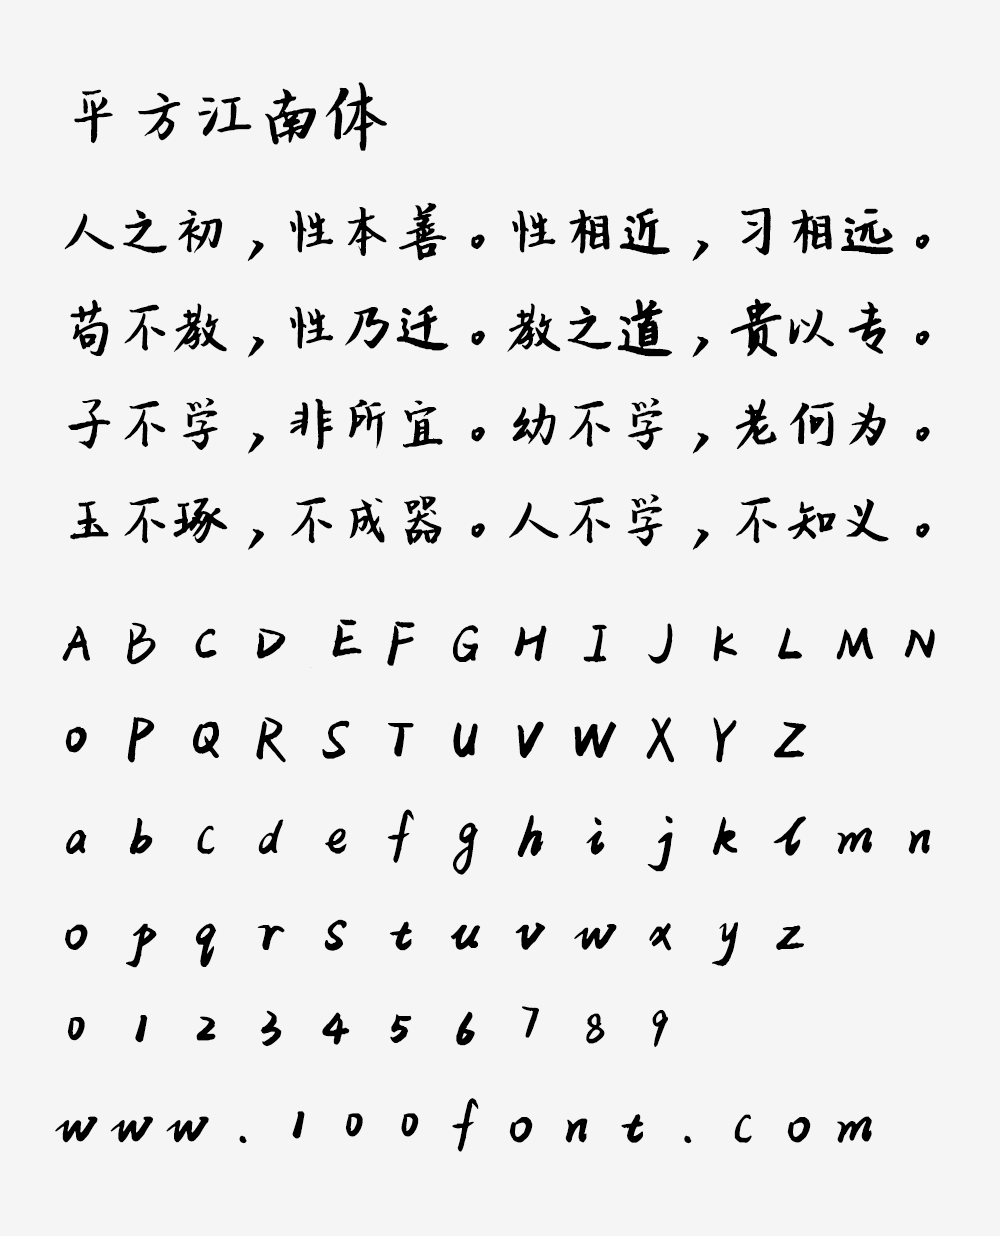 平方江南体
人之初，性本善。性相近，习相远。
苟不教，性乃迁。教之道，贵以专。
子不学，非所宜。幼不学，老何为。
玉不琢，不成器。人不学，不知义。
A B C D E F G H I J K L M N
O P Q R S T U V W X Y Z
a b c d e f g h i j k l m n
o p q r s t u v w x y z
0 1 2 3 4 5 6 7 8 9
www.100font.com